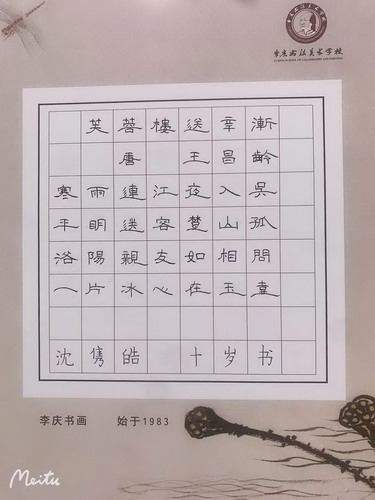 李庆书法美术学校
芙蓉樓送辛漸
唐 王昌齡
寒雨連江夜入吳
平明送客楚山孤
洛陽親友如相問
一片冰心在玉壺
沈隽皓 十岁书
李庆书画 始于1983
Meitu